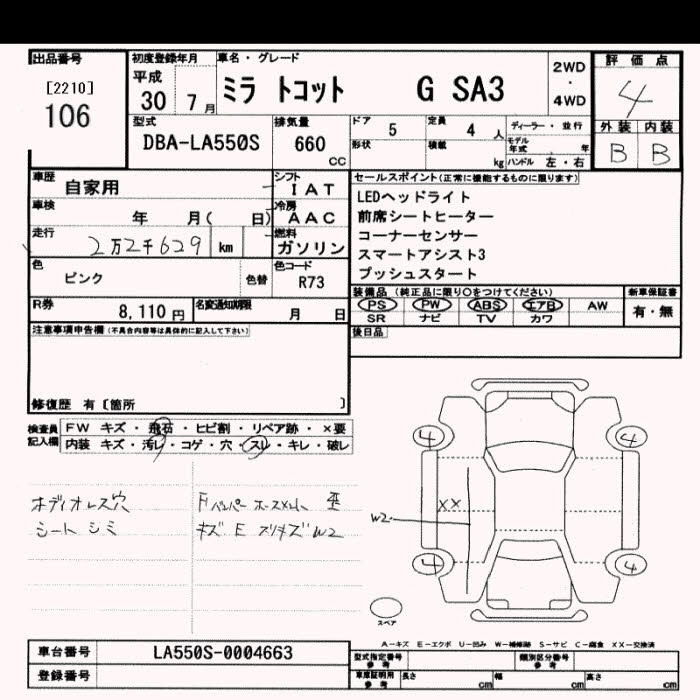 出品番号
[2210]
106
初度登録年月
平成
30 7月
車名・グレード
ミラ トコット G SA3
2WD
・
4WD
評価点
4
外装 内装
B B
型式
DBA-LA550S
排気量
660
cc
ドア 5
定員 4 人
形状
積載 kg
ディーラー・並行
モデル年式 . 年
ハンドル 左・右
車歴 自家用
シフト
I A T
車検 年 月( 日)
冷房
A A C
走行 2万2千629 km
燃料
ガソリン
色 ピンク 色替
色コード
R73
R券 8,110 円
名変通知期限 月 日
セールスポイント(正常に機能するものに限ります)
LEDヘッドライト
前席シートヒーター
コーナーセンサー
スマートアシスト3
プッシュスタート
装備品 (純正品に限り〇をつけてください)
PS PW ABS エアB AW
SR ナビ TV カワ
新車保証書
有・無
後日品
注意事項申告欄(不具合内容等は具体的に記入して下さい)
修復歴 有〔箇所 〕
検査員
記入欄
FW キズ・飛石・ヒビ割・リペア跡・×要
内装 キズ・汚レ・コゲ・穴・スレ・キレ・破レ
ボディオレス穴
シート シミ
キズ E スリキズ W2
4
4
4
4
W2
XX
スペア
A-キズ E-エクボ U-凹み W-補修跡 S-サビ C-腐食 XX-交換済
車台番号 LA550S-0004663
登録番号
型式指定番号
参考
類別区分番号
参考
車庫証明用
参考
長さ cm 幅 cm 高さ cm